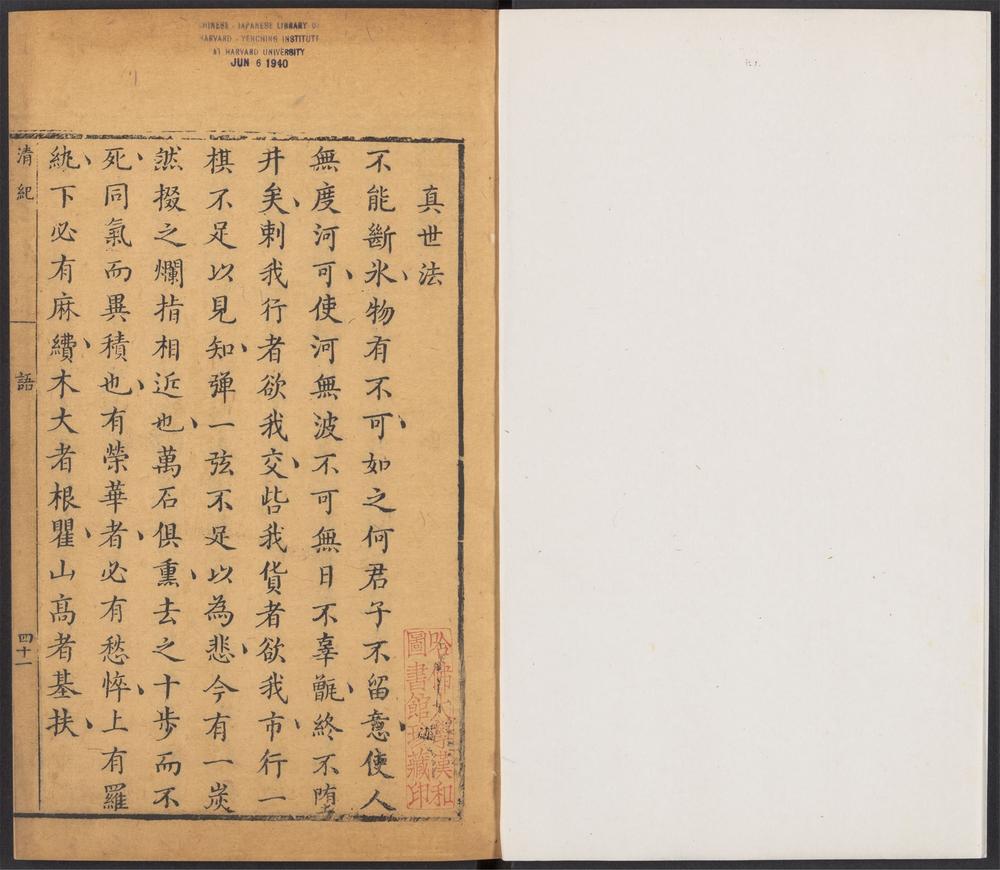 CHINESE - JAPANESE LIBRARY OF
HARVARD - YENCHING INSTITUTE
AT HARVARD UNIVERSITY
JUN 6 1940
真世法
不能斷氷物有不可如之何君子不留意使人
無度河可使河無波不可無日不辜甂終不墮
井矣刺我行者欲我交呰我貨者欲我市行一
棋不足以見知弹一弦不足以為悲今有一炭
然掇之爛指相近也萬石俱熏去之十步而不
死同氣而異積也有榮華者必有愁悴上有羅
紈下必有麻䌇木大者根瞿山高者基扶
清紀
語
四十一
哈佛大學漢和
圖書館珍藏印